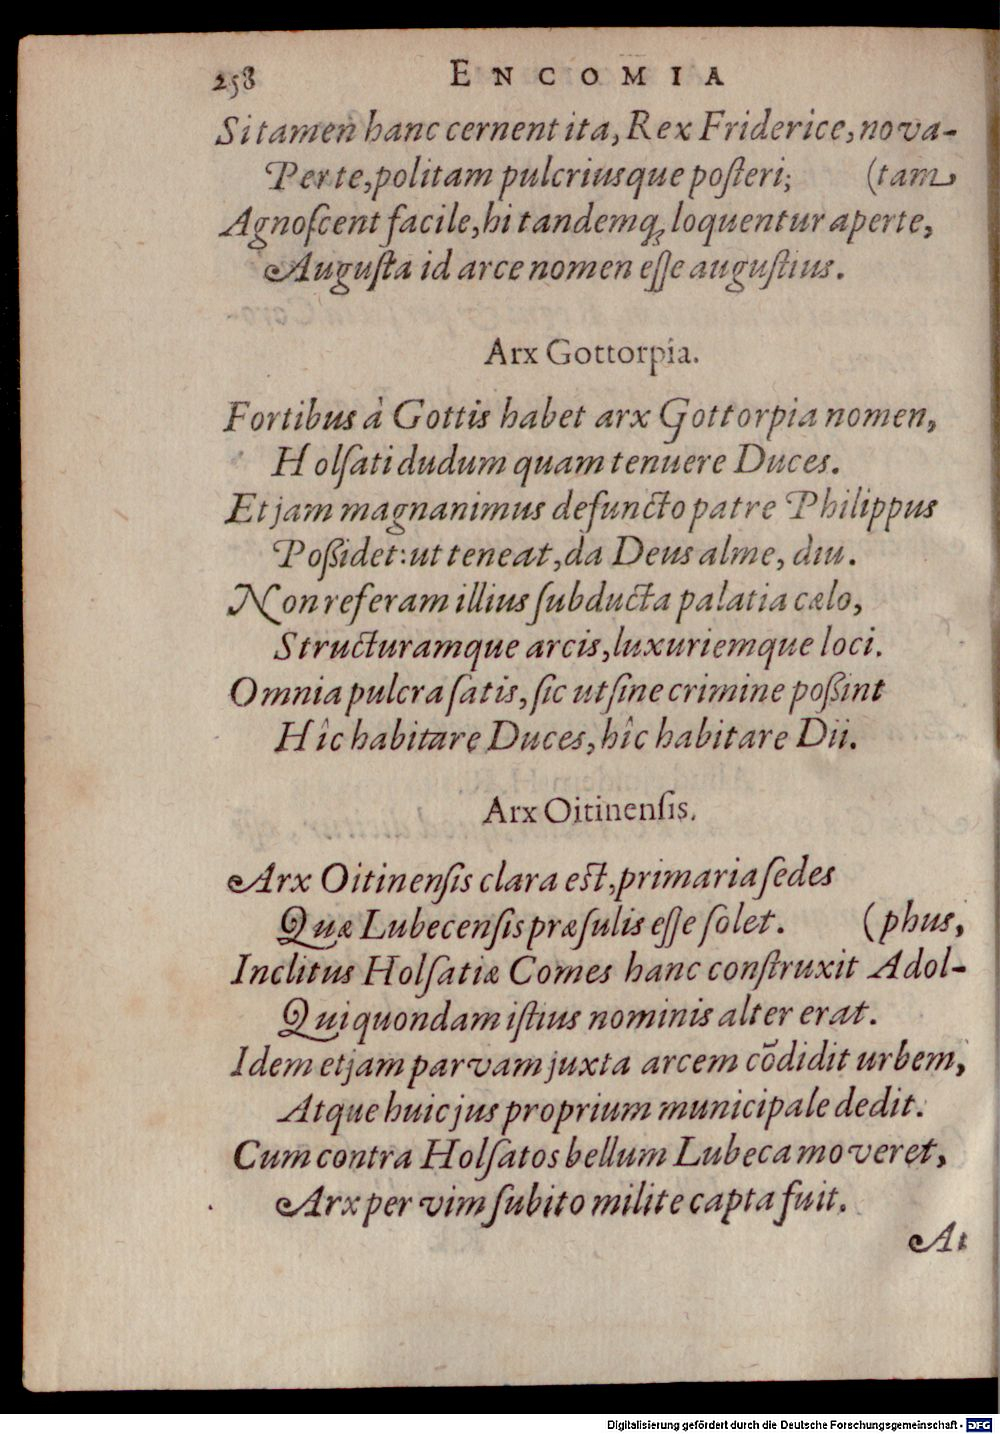 258 ENCOMIA
Si tamen hanc cernent ita, Rex Friderice, nova-
Per te, politam pulcriusque posteri; (tam
Agnoscent facile, hi tandemq; loquentur aperte,
Augusta id arce nomen esse augustius.
Arx Gottorpia.
Fortibus à Gottis habet arx Gottorpia nomen,
Holsati dudum quam tenuere Duces.
Et jam magnanimus defuncto patre Philippus
Poßidet: ut teneat, da Deus alme, diu.
Non referam illius subducta palatia cælo,
Structuramque arcis, luxuriemque loci.
Omnia pulcra satis, sic ut sine crimine poßint
Hîc habitare Duces, hîc habitare Dii.
Arx Oitinensis.
Arx Oitinensis clara est, primaria sedes
Quæ Lubecensis præsulis esse solet. (phus,
Inclitus Holsatiæ Comes hanc construxit Adol-
Qui quondam istius nominis alter erat.
Idem etjam parvam juxta arcem cõdidit urbem,
Atque huic jus proprium municipale dedit.
Cum contra Holsatos bellum Lubeca moveret,
Arx per vim subito milite capta fuit.
At
Digitalisierung gefördert durch die Deutsche Forschungsgemeinschaft - DFG